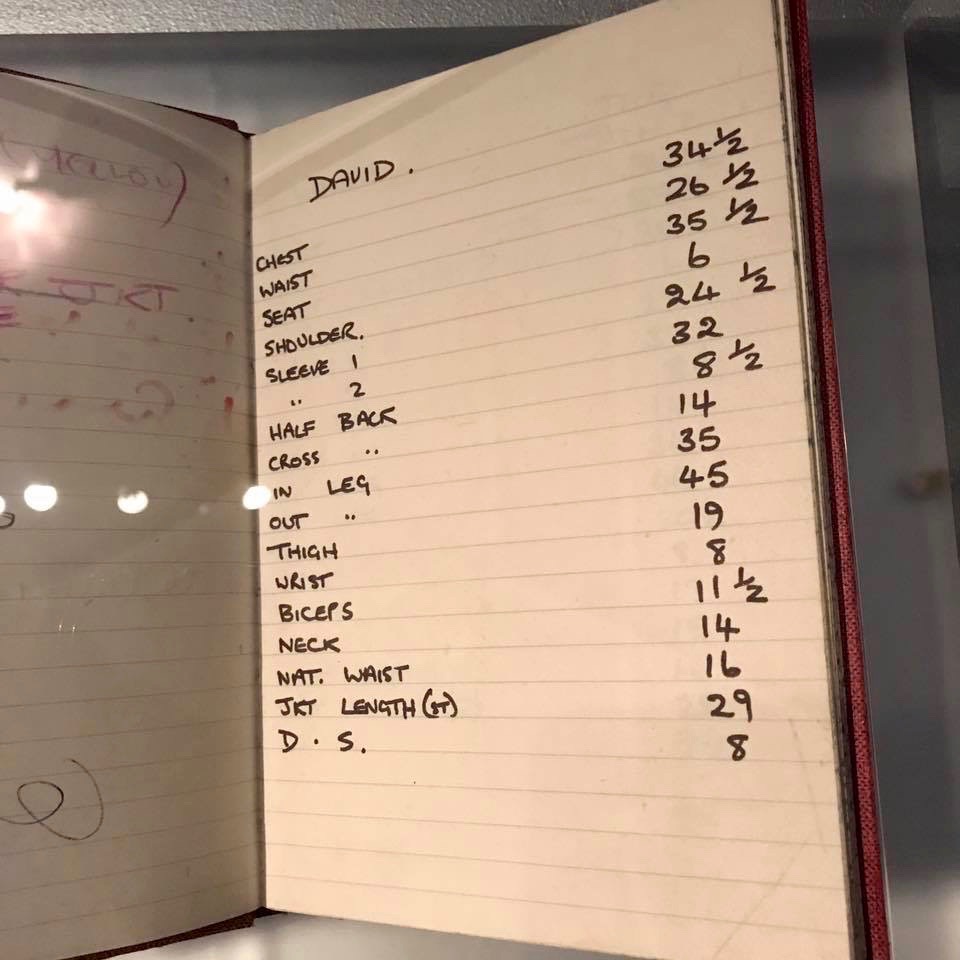 JKT
DAVID.
CHEST 34 1/2
WAIST 26 1/2
SEAT 35 1/2
SHOULDER. 6
SLEEVE 1 24 1/2
" 2 32
HALF BACK 8 1/2
CROSS " 14
IN LEG 35
OUT " 45
THIGH 19
WRIST 8
BICEPS 11 1/2
NECK 14
NAT. WAIST 16
JKT LENGTH 29
D.S. 8